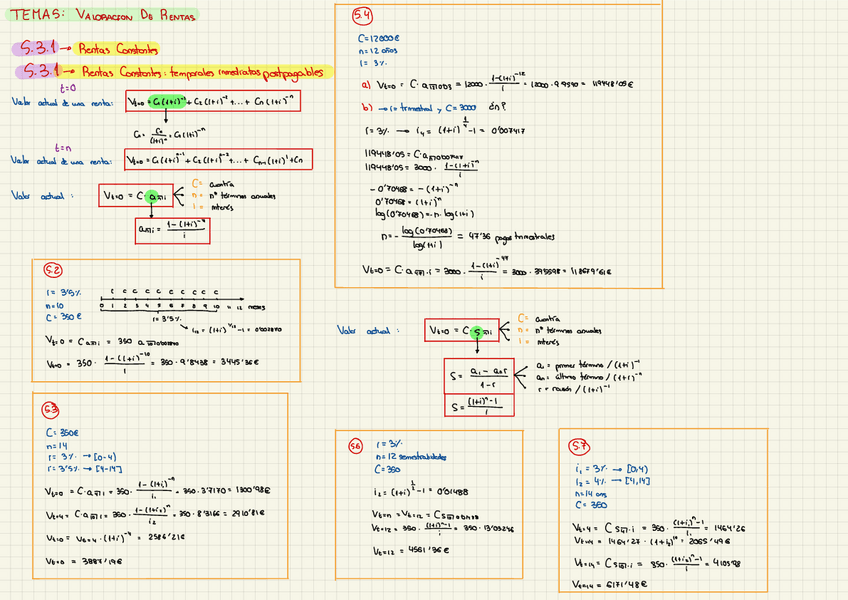 TEMAS: VALORACION DE RENTAS
5.3.1 → Rentas Constantes
5.3.1 → Rentas Constantes: temporales inmediatas postpagables
t=0
Valor actual de una renta: Vt=0 = C1(1+i)^-1 + C2(1+i)^-2 + ... + Cn(1+i)^-n
t=n
Valor actual de una renta: Vt=0 = C1(1+i)^n-1 + C2(1+i)^n-2 + ... + Cn-1(1+i)^1 + Cn
Valor actual: Vt=0 = C · a n¬i
C = cuantía
n = nº términos anuales
i = interés
a n¬i = (1-(1+i)^-n)/i
5.2
i = 3'5%
n=10
C = 350 €
C C C C C C C C C C
0 1 2 3 4 5 6 7 8 9 10 11 12 meses
i=3'5%
i12 = (1+i)^1/12 - 1 = 0'002870
Vt=0 = C a n¬i = 350 a 10¬0'002870
Vt=0 = 350 · (1-(1+i)^-10)/i = 350 · 9'8438 = 3445'36€
5.3
C = 350€
n=14
i = 3% → [0-4)
i = 3'5% → [4-14]
Vt=0 = C·a n¬i = 350 · (1-(1+i)^-n)/i1 = 350·3'7170 = 1300'98€
Vt=4 = C·a n¬i = 350 · (1-(1+i2)^-n)/i2 = 350·8'3166 = 2910'81€
Vt=0 = Vt=4 · (1+i)^-4 = 2586'21€
Vt=0 = 3887'19€
5.4
C=12000€
n=12 años
i = 3%
a) Vt=0 = C · a 12¬0'03 = 12000 · (1-(1+i)^-12)/i = 12000 · 9'9540 = 119448'05€
b) → i= trimestral y C=3000 ¿n?
i=3% → i4 = (1+i)^1/4 - 1 = 0'007417
119448'05 = C·a n¬0'007417
119448'05 = 3000 · (1-(1+i)^-n)/i
-0'70468 = -(1+i)^-n
0'70468 = (1+i)^-n
log(0'70468) = -n · log(1+i)
n = - log(0'70468)/log(1+i) = 47'36 pagos trimestrales
Vt=0 = C·a 47¬i = 3000 · (1-(1+i)^-47)/i = 3000 · 39'5598 = 118679'61€
Valor actual: Vt=0 = C · S n¬i
C = cuantía
n = nº términos anuales
i = interés
S = (a1 - an·r)/(1-r)
a1 = primer término / (1+i)^-1
an = último término / (1+i)^-n
r = razón / (1+i)^-1
S = ((1+i)^n - 1)/i
5.6
i = 3%
n = 12 semestralidades
C = 350
i2 = (1+i)^1/2 - 1 = 0'01488
Vt=n = Vt=12 = C S 12¬0'01488
Vt=12 = 350 · ((1+i)^n - 1)/i = 350 · 13'03246
Vt=12 = 4561'36€
5.7
i1 = 3% → [0,4)
i2 = 4% → [4,14]
n = 14 ans
C = 350
Vt=4 = C S n¬i = 350 · ((1+i)^n - 1)/i = 1464'26
Vt=14 = 1464'27 · (1+i2)^10 = 2065'49€
Vt=14 = C S n¬i = 350 · ((1+i2)^n - 1)/i = 4105'98
Vt=14 = 6171'48€